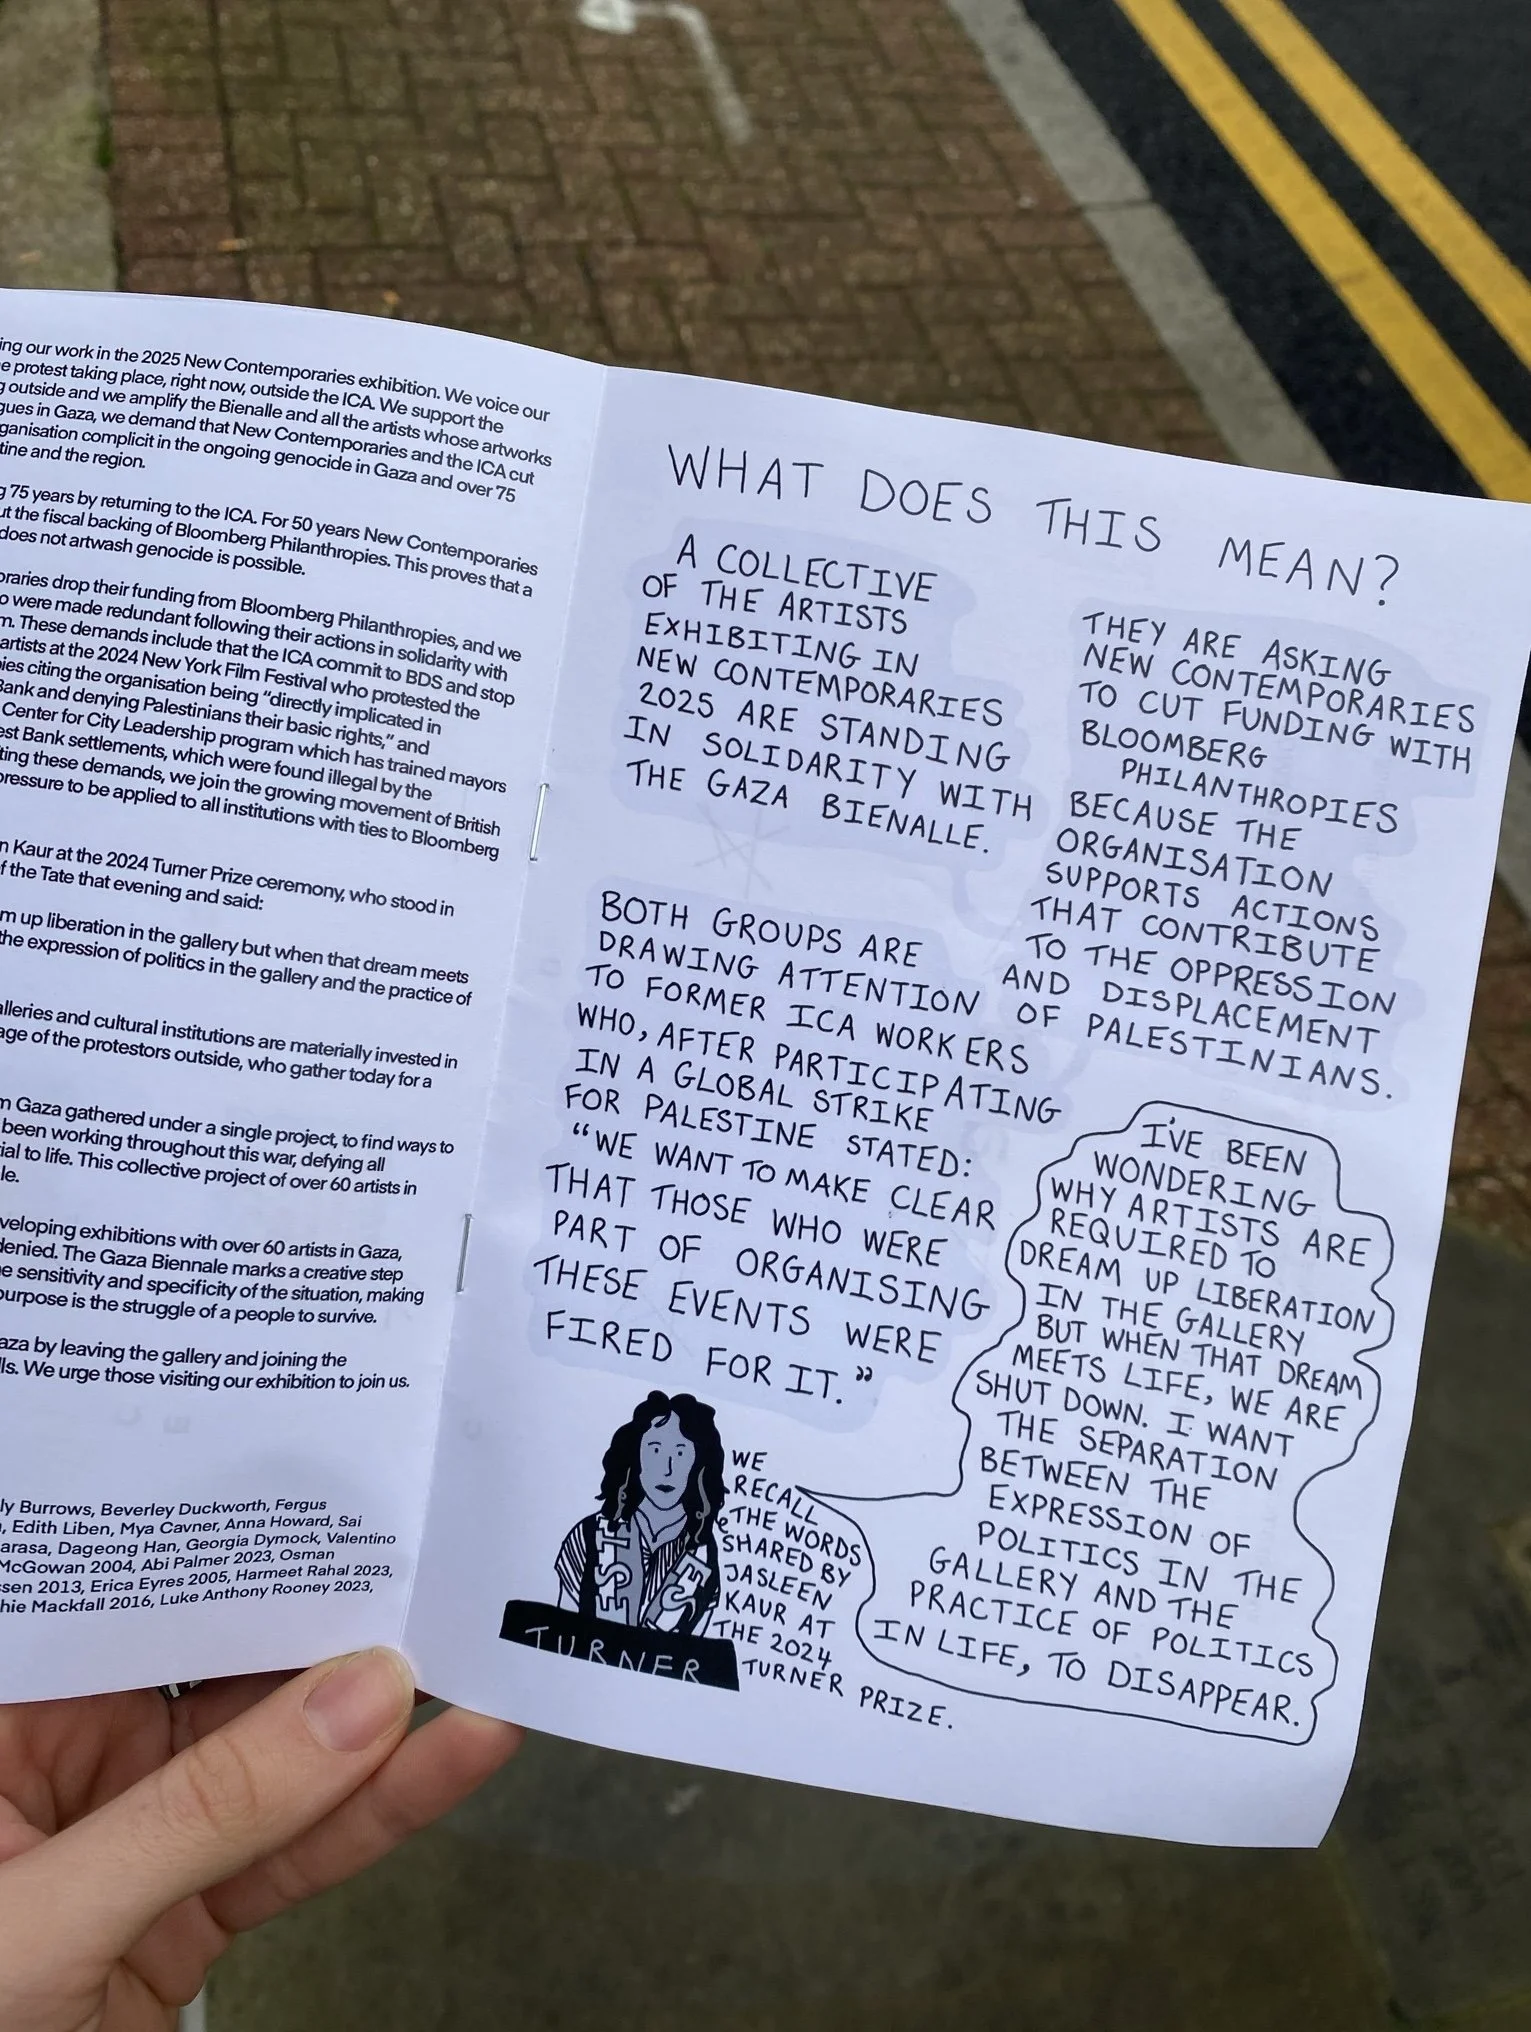 ing our work in the 2025 New Contemporaries exhibition. We voice our
e protest taking place, right now, outside the ICA. We support the
g outside and we amplify the Bienalle and all the artists whose artworks
gues in Gaza, we demand that New Contemporaries and the ICA cut
ganisation complicit in the ongoing genocide in Gaza and over 75
tine and the region.
g 75 years by returning to the ICA. For 50 years New Contemporaries
ut the fiscal backing of Bloomberg Philanthropies. This proves that a
does not artwash genocide is possible.
oraries drop their funding from Bloomberg Philanthropies, and we
o were made redundant following their actions in solidarity with
m. These demands include that the ICA commit to BDS and stop
artists at the 2024 New York Film Festival who protested the
pies citing the organisation being "directly implicated in
Bank and denying Palestinians their basic rights," and
Center for City Leadership program which has trained mayors
est Bank settlements, which were found illegal by the
ting these demands, we join the growing movement of British
pressure to be applied to all institutions with ties to Bloomberg
n Kaur at the 2024 Turner Prize ceremony, who stood in
f the Tate that evening and said:
m up liberation in the gallery but when that dream meets
the expression of politics in the gallery and the practice of
alleries and cultural institutions are materially invested in
age of the protestors outside, who gather today for a
m Gaza gathered under a single project, to find ways to
been working throughout this war, defying all
ial to life. This collective project of over 60 artists in
le.
veloping exhibitions with over 60 artists in Gaza,
denied. The Gaza Biennale marks a creative step
e sensitivity and specificity of the situation, making
purpose is the struggle of a people to survive.
aza by leaving the gallery and joining the
lls. We urge those visiting our exhibition to join us.
ly Burrows, Beverley Duckworth, Fergus
, Edith Liben, Mya Cavner, Anna Howard, Sai
arasa, Dageong Han, Georgia Dymock, Valentino
McGowan 2004, Abi Palmer 2023, Osman
ssen 2013, Erica Eyres 2005, Harmeet Rahal 2023,
hie Mackfall 2016, Luke Anthony Rooney 2023,
WHAT DOES THIS MEAN?
A COLLECTIVE
OF THE ARTISTS
EXHIBITING IN
NEW CONTEMPORARIES
2025 ARE STANDING
IN SOLIDARITY WITH
THE GAZA BIENALLE.
THEY ARE ASKING
NEW CONTEMPORARIES
TO CUT FUNDING WITH
BLOOMBERG
PHILANTHROPIES
BECAUSE THE
ORGANISATION
SUPPORTS ACTIONS
THAT CONTRIBUTE
TO THE OPPRESSION
AND DISPLACEMENT
OF PALESTINIANS.
BOTH GROUPS ARE
DRAWING ATTENTION
TO FORMER ICA WORKERS
WHO, AFTER PARTICIPATING
IN A GLOBAL STRIKE
FOR PALESTINE STATED:
"WE WANT TO MAKE CLEAR
THAT THOSE WHO WERE
PART OF ORGANISING
THESE EVENTS WERE
FIRED FOR IT."
I'VE BEEN
WONDERING
WHY ARTISTS ARE
REQUIRED TO
DREAM UP LIBERATION
IN THE GALLERY
BUT WHEN THAT DREAM
MEETS LIFE, WE ARE
SHUT DOWN. I WANT
THE SEPARATION
BETWEEN THE
EXPRESSION OF
POLITICS IN THE
GALLERY AND THE
PRACTICE OF POLITICS
IN LIFE, TO DISAPPEAR.
WE
RECALL
THE WORDS
SHARED BY
JASLEEN
KAUR AT
THE 2024
TURNER PRIZE.
TURNER